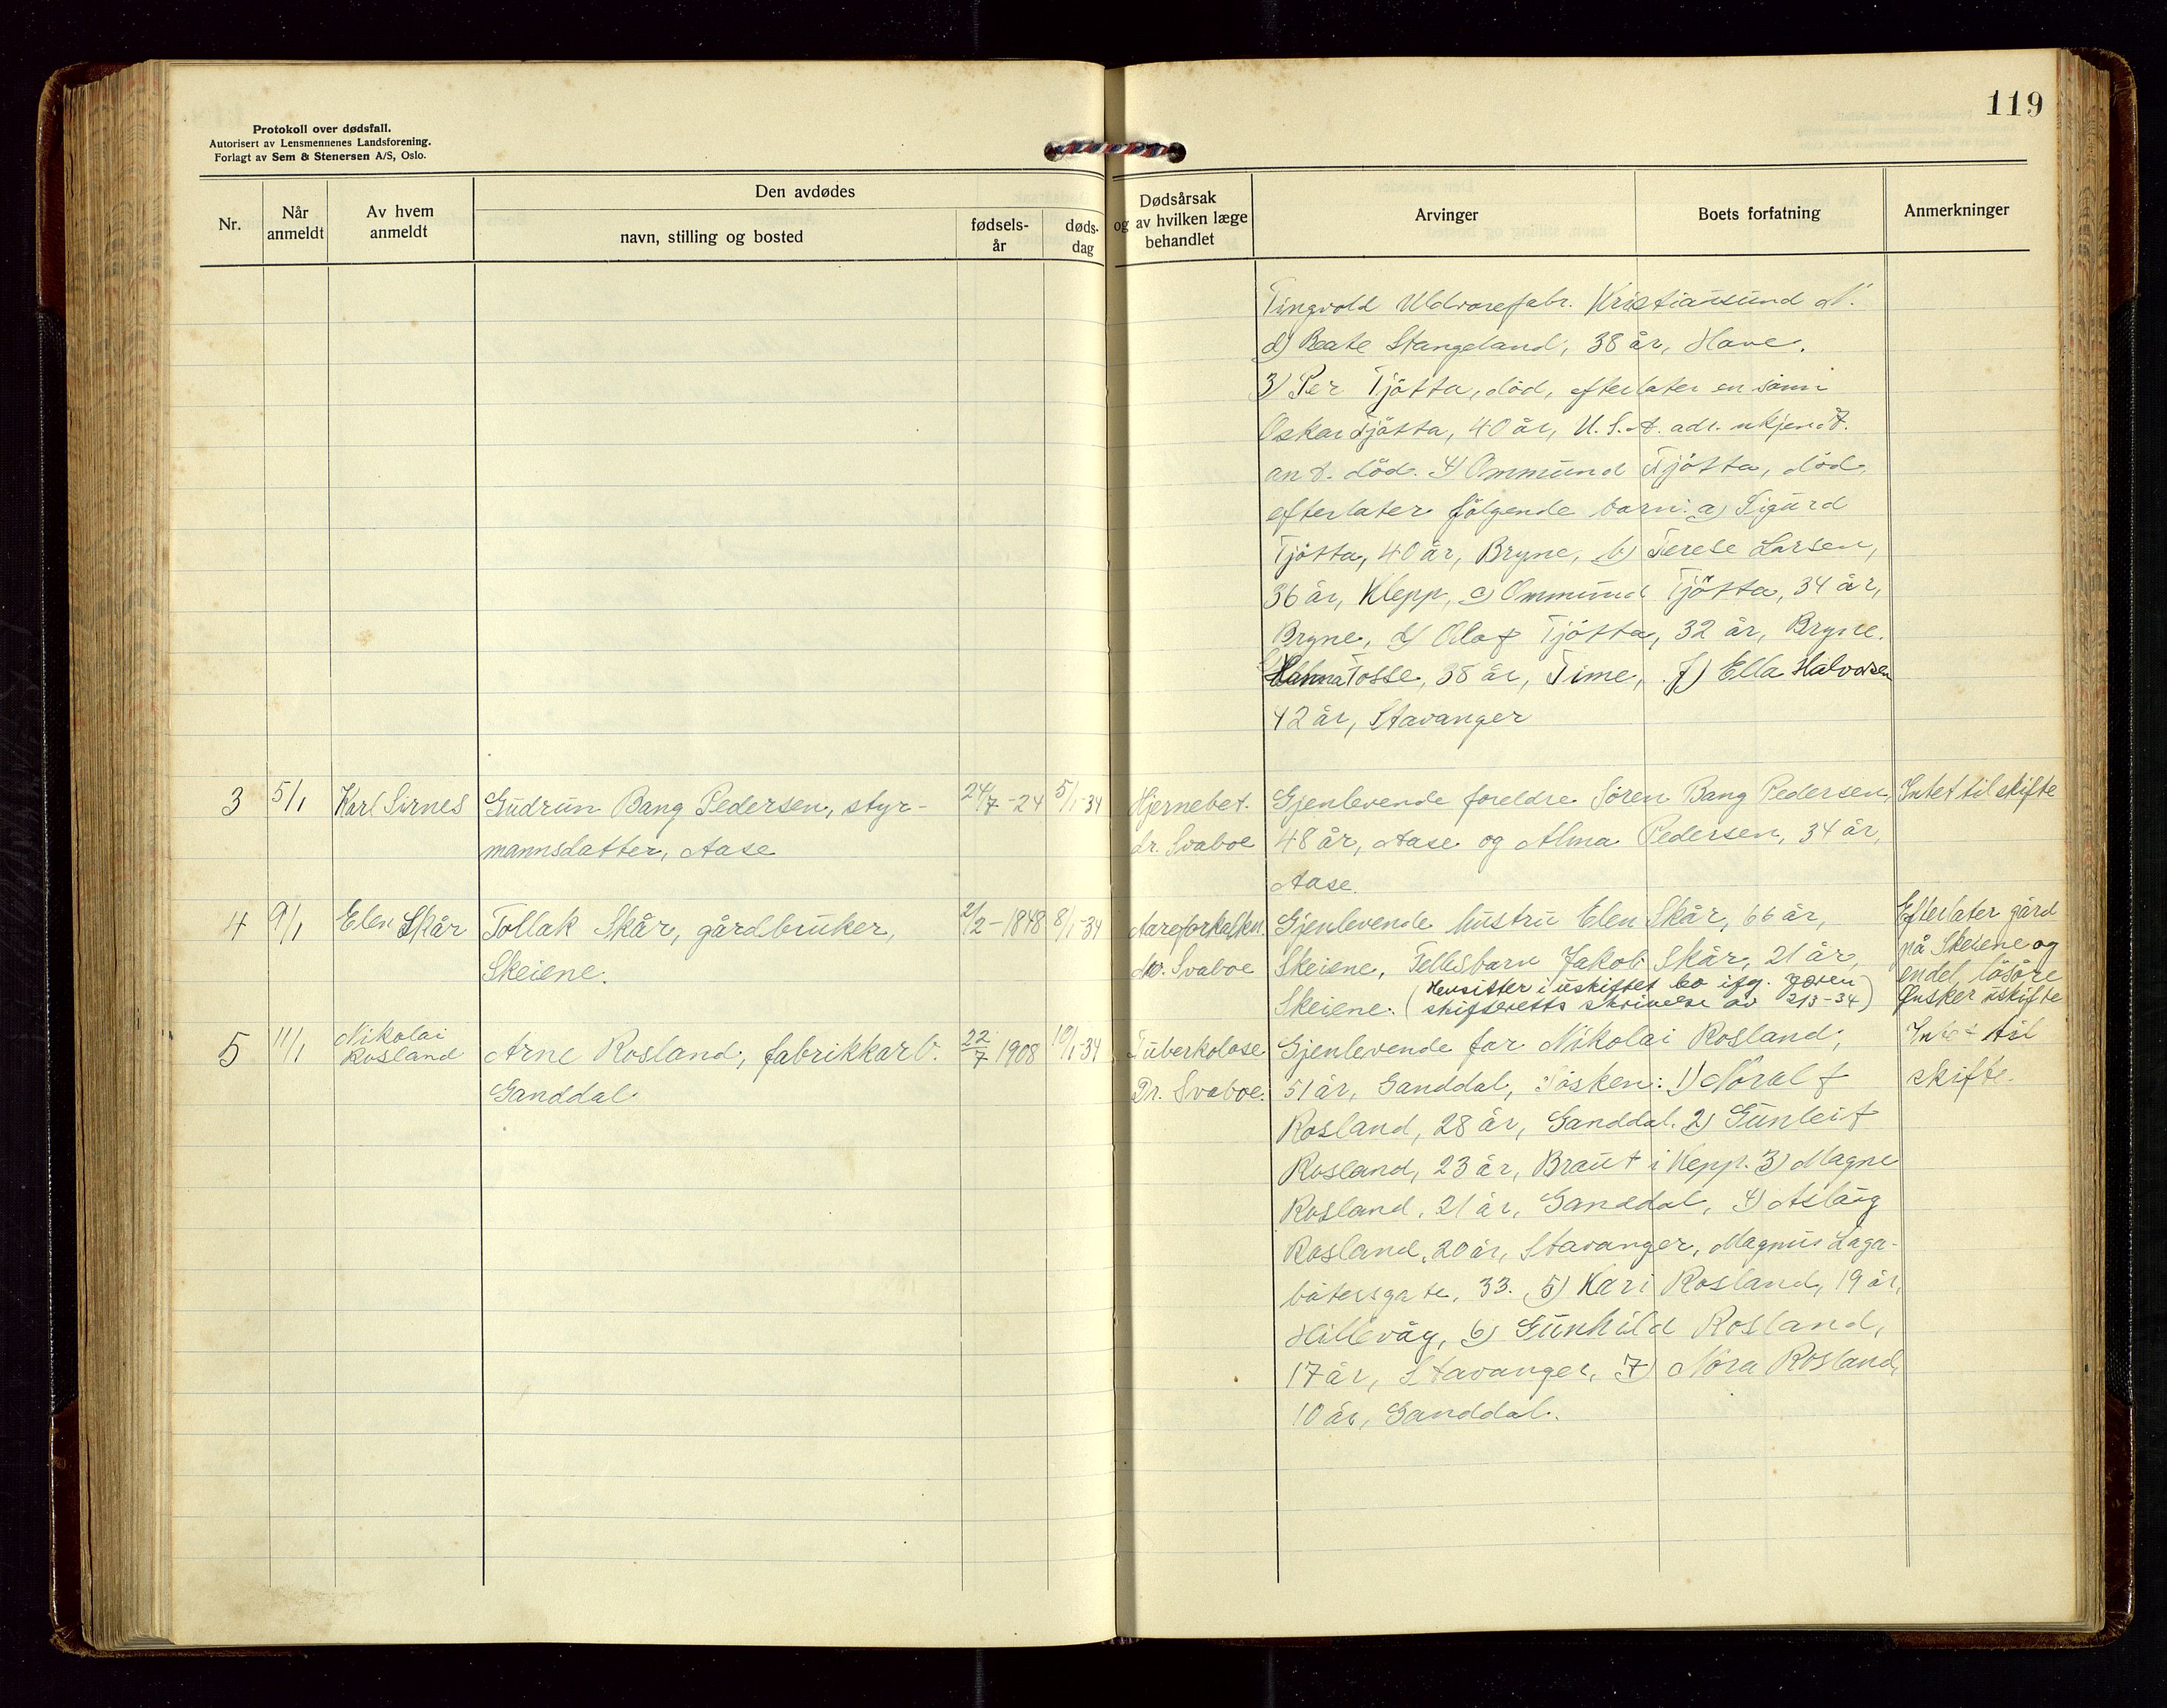 119
Protokoll over dødsfall.
Autorisert av Lensmennenes Landsforening.
Forlagt av Sem & Stenersen A/S, Oslo.
Nr.
Når anmeldt
Av hvem anmeldt
Den avdødes
navn, stilling og bosted
fødsels-år
døds-dag
Dødsårsak og av hvilken læge behandlet
Arvinger
Boets forfatning
Anmerkninger
Tingvold Uldvarefabr. Kristiansund N.
d) Beate Stangeland, 38 år, Have.
3) Per Tjötta, död, efterlater en sönn
Oskar Tjötta, 40 år, U.S.A. adr. ukjendt.
ant. död. 4) Ommund Tjötta, död,
efterlater fölgende barn: a) Sigurd
Tjötta, 40 år, Bryne, b) Terese Larsen,
36 år, Klepp, c) Ommund Tjötta, 34 år,
Bryne, d) Olaf Tjötta, 32 år, Bryne.
Hanna Tosse, 38 år, Time, f) Ella Halvorsen
42 år, Stavanger
3
5/1
Karl Sirnes
Gudrun Bang Pedersen, styr-
mannsdatter, Aase
24/7-24
5/1-34
Hjernebet.
dr. Svaboe
Gjenlevende foreldre Sören Bang Pedersen,
48 år, Aase og Alma Pedersen, 34 år,
Aase.
Intet til skifte
4
9/1
Elen Skår
Tollak Skår, gårdbruker,
Skeiene.
2/2-1848
8/1-34
Aareforkalkn.
dr. Svaboe
Gjenlevende hustru Elen Skår, 66 år,
Skeiene, Fellesbarn Jakob Skår, 21 år,
Skeiene. (Hensitter i uskiftet bo ifg. Jæren
skifteretts skrivelse av 2/3-34)
Efterlater gård
på Skeiene og
endel lösöre
Ønsker uskifte
5
11/1
Nikolai
Rosland
Arne Rosland, fabrikkarb.
Ganddal.
22/7 1908
10/1-34
Tuberkolose
Dr. Svaboe.
Gjenlevende far Nikolai Rosland,
51 år, Ganddal, Sösken: 1) Noralf
Rosland, 28 år, Ganddal. 2) Gunleif
Rosland, 23 år, Braut i Klepp. 3) Magne
Rosland, 21 år, Ganddal, 4) Aslaug
Rosland, 20 år, Stavanger, Magnus Laga-
bötersgate, 33. 5) Kari Rosland, 19 år,
Hillevåg, 6) Gunhild Rosland,
17 år, Stavanger, 7) Nora Rosland,
10 år, Ganddal.
Intet til
skifte.